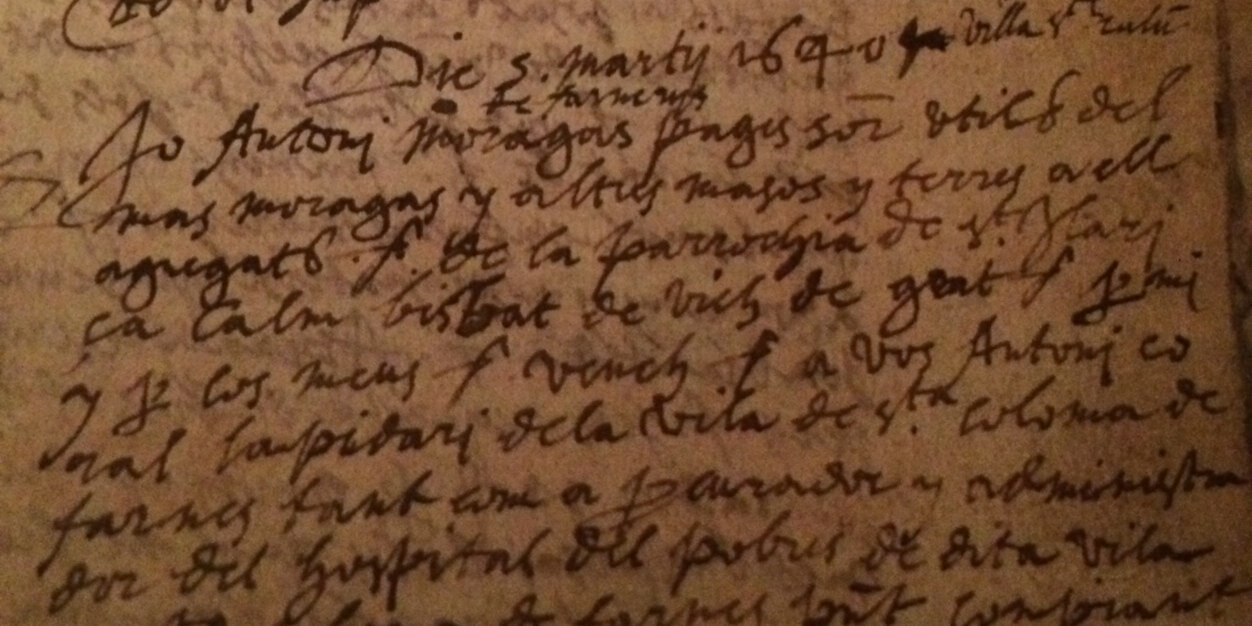 Die 5. martij 1640 villa Stę
de farneris
Jo Antonj moragas pages sor utils del
mas moragas y altres masos y terres a ell
agregats f. de la parrochia de st. Hilarj
ça calm bisbat de vich de grat f p mi
y p los meus f vench f a vos Antonj co
ral lapidarj dela vila de sta coloma de
farnes tant com a pcurador y administra
dor del hospital del pobres de dita vila
de farnes pnt